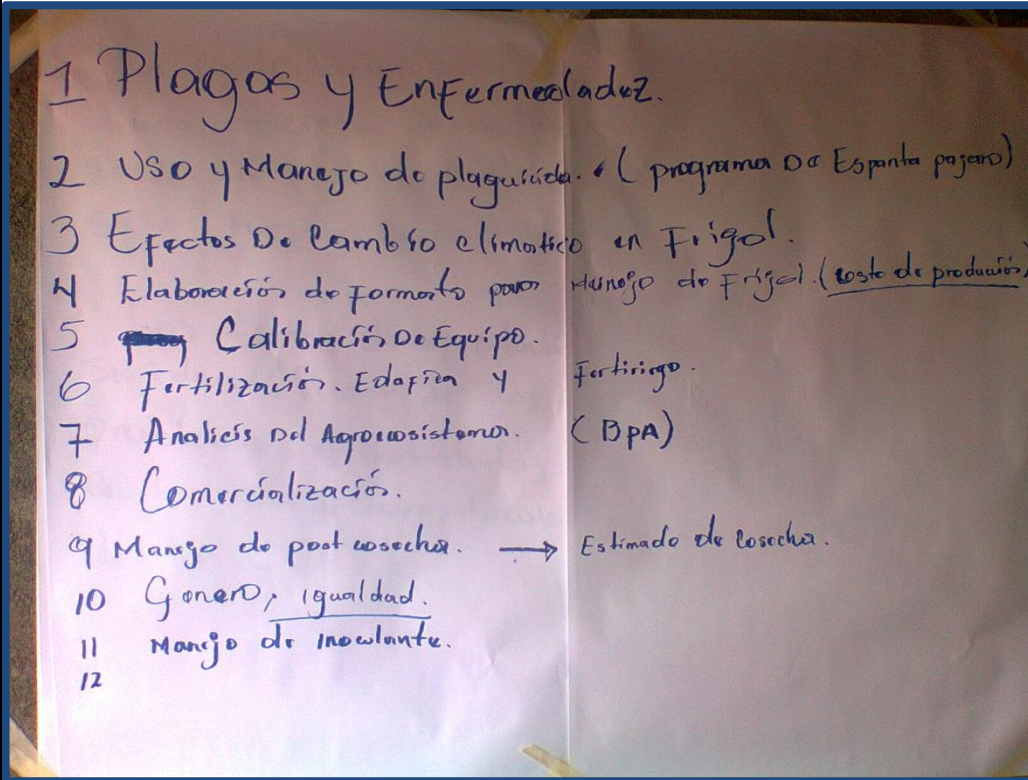 1 Plagas y Enfermedadez.
2 Uso y Manejo de plaguicida. (programa De Espanta pajaro)
3 Efectos De Cambio climatico en Frigol.
4 Elaboración de Formato para Manejo de Frijol. (costo de produción)
5 Calibración De Equipo.
6 Fertilización. Edafica y Fertiriego.
7 Analicis Del Agroecosistema. (BPA)
8 Comercialización.
9 Manejo de post cosecha. → Estimado de Cosecha.
10 Genero, igualdad.
11 Manejo de inoculante.
12